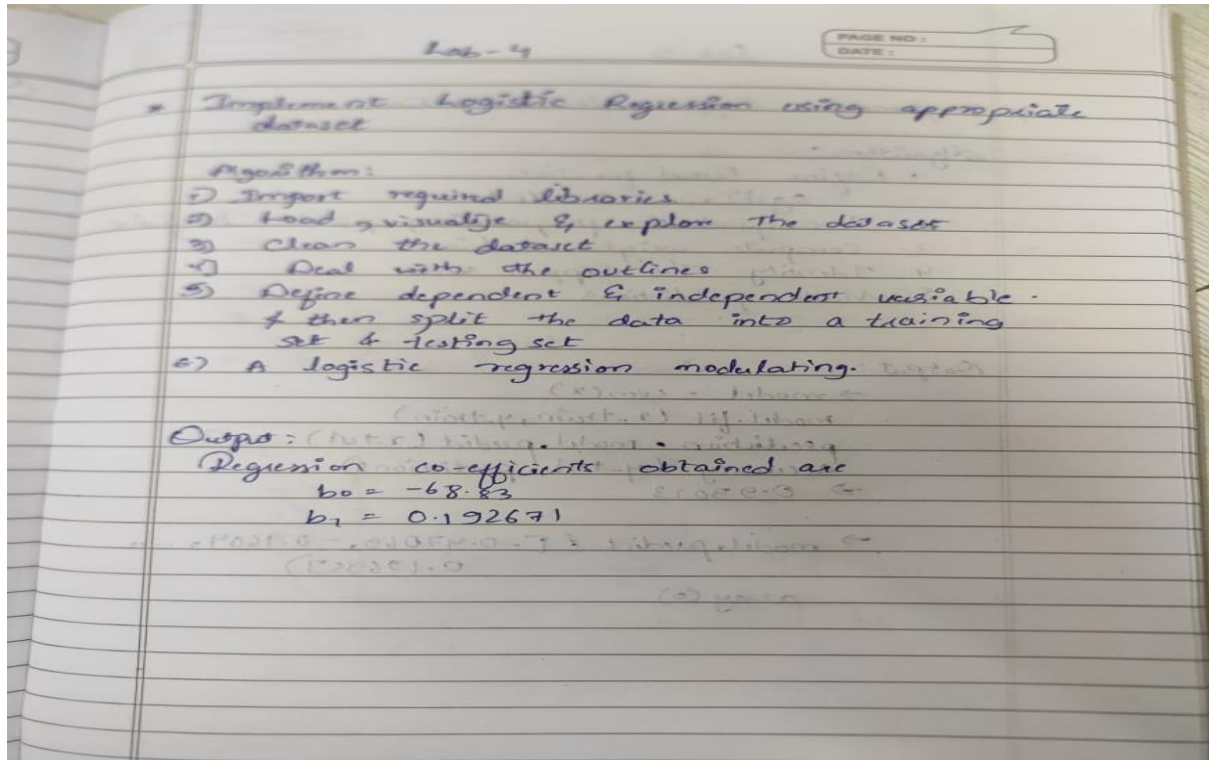 PAGE NO :
DATE :
Lab - 4
* Implement Logistic Regression using appropriate
dataset
Algorithm:
1) Import required libraries
2) Load, visualize & explore the dataset
3) Clean the dataset
4) Deal with the outlines
5) Define dependent & independent variable.
& then split the data into a training
set & testing set
6) A logistic regression modulating.
Output:
Regression co-efficients obtained are
b0 = -68.83
b1 = 0.192671